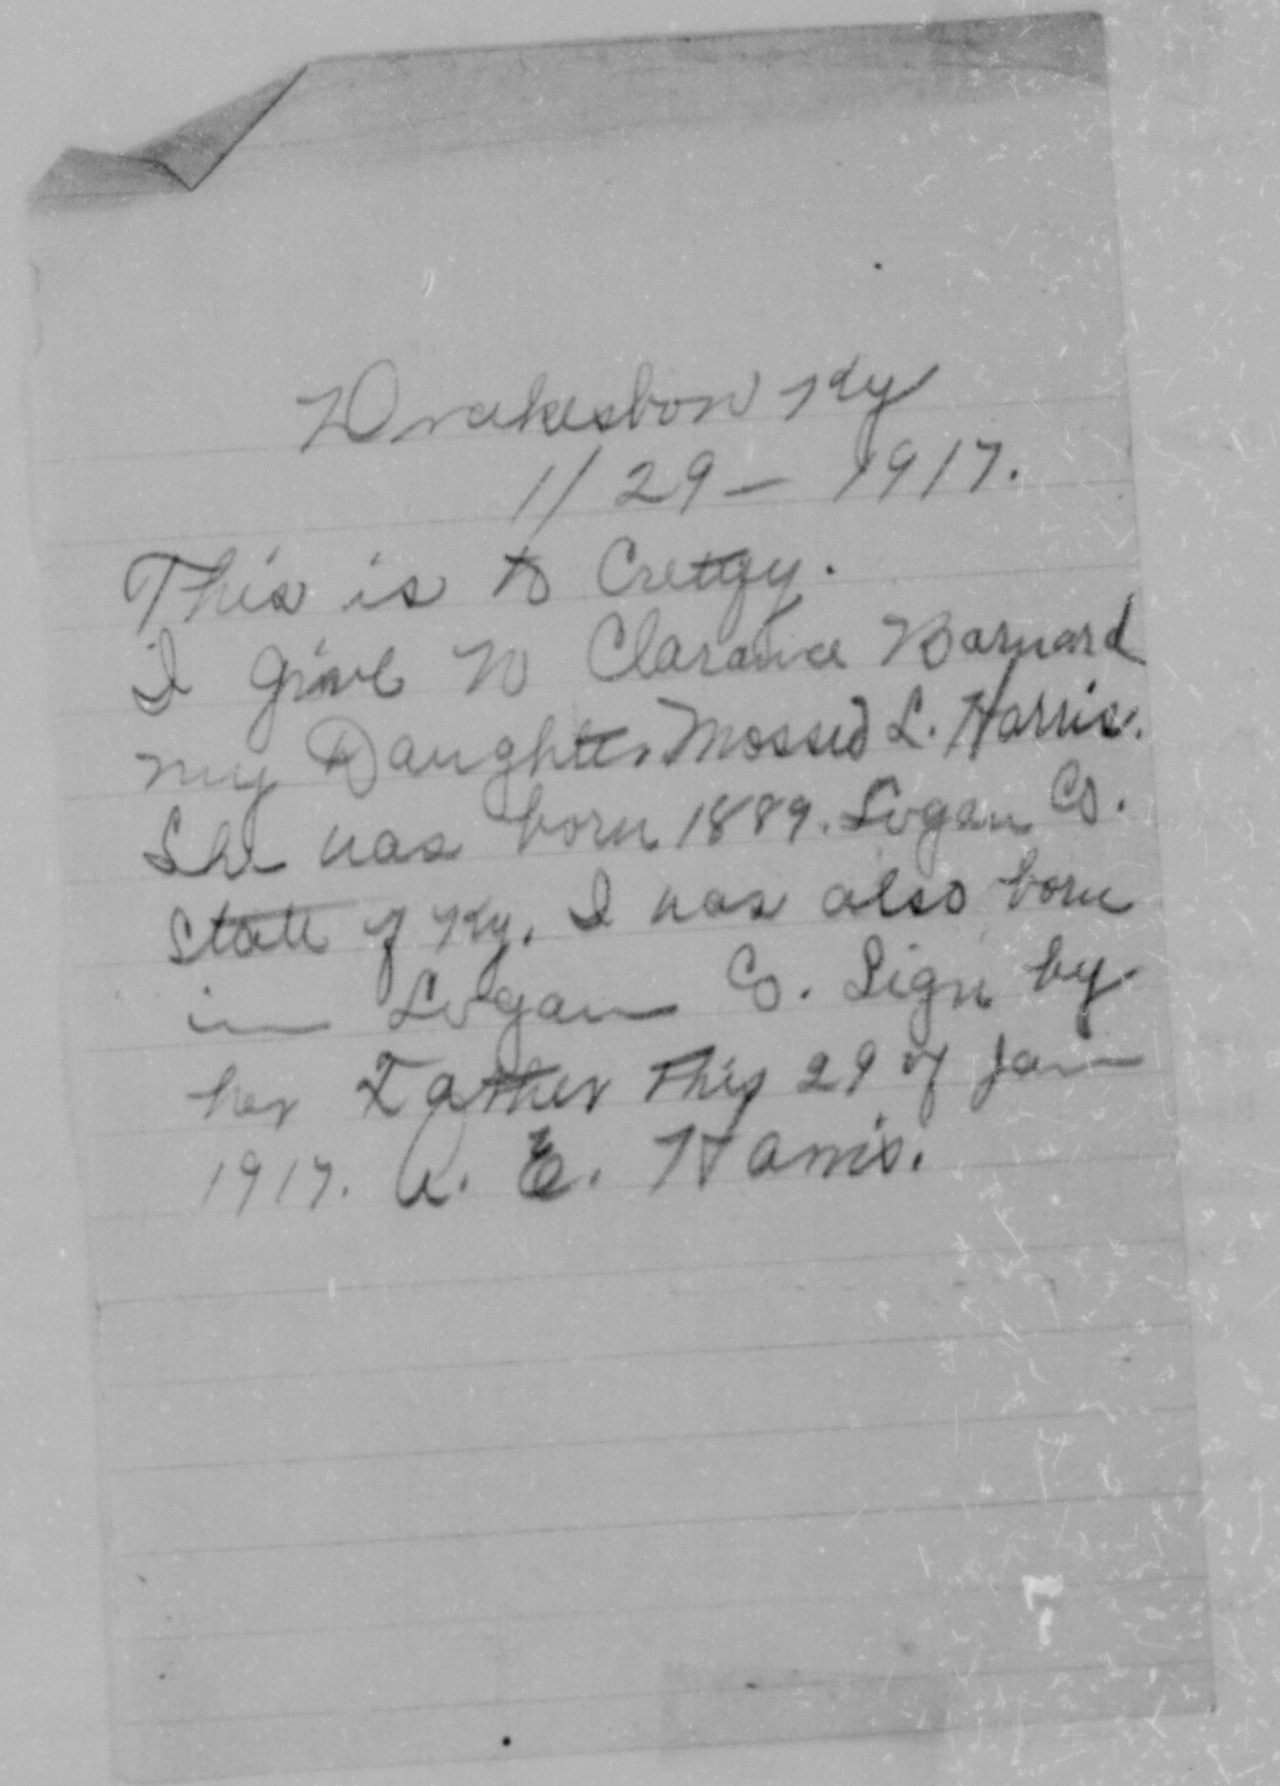 Drakesboro Ky
1/29 - 1917.
This is to Cretyfy.
I give to Clarance Barnard
my Daughter L. Harris.
She was born 1889. Logan Co.
State of Ky. I was also born
in Logan Co. Sign by
her Father This 29 of Jan
1917. A. E. Harris.